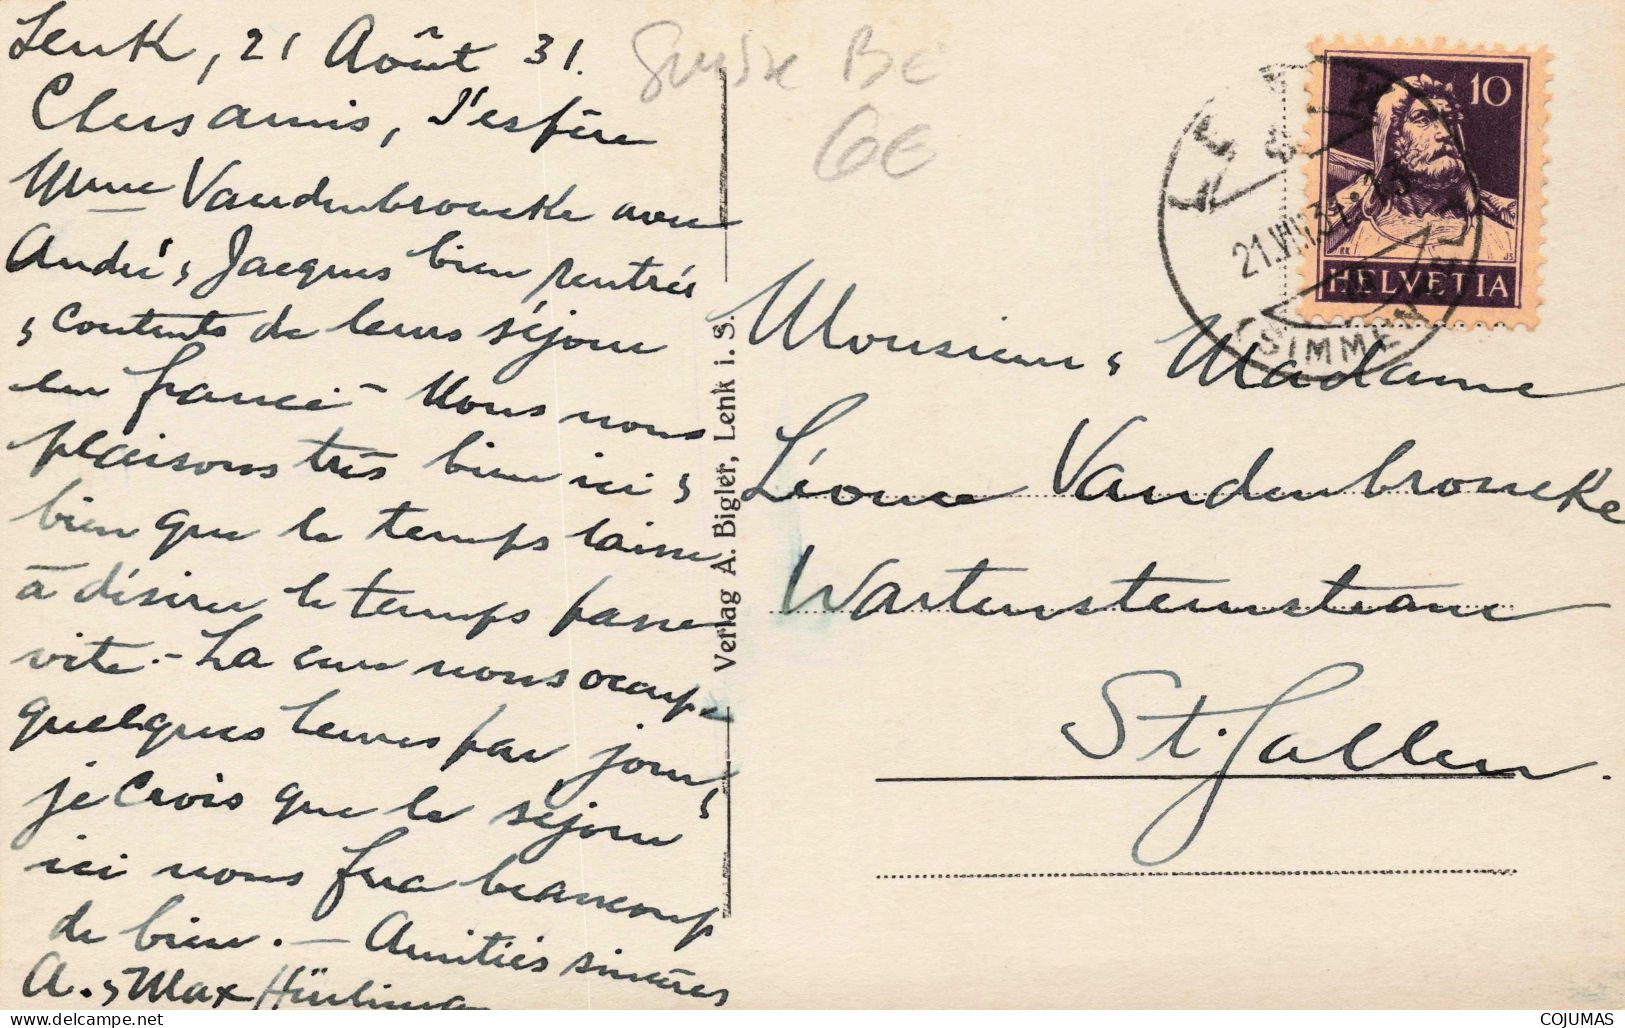 Lenk, 21 Août 31.
Chers amis, J'espère
Mme Vandenbroucke avec
André & Jacques bien rentrés
& contents de leurs séjour
en france - Nous nous
plaisons très bien ici &
bien que le temps laisse
à désirer le temps passe
vite. - La cure nous occupe
quelques heures par jour &
je crois que le séjour
ici nous fera beaucoup
de bien. - Amitiés sincères
A. & Max Hürlimann
Suisse BE
6€
Verlag A. Bigler, Lenk i. S.
10
HELVETIA
LENK
21.VIII.31
(SIMMEN
Monsieur & Madame
Léone Vandenbroucke
Wartensteinstrasse
St. Gallen.
COJUMAS